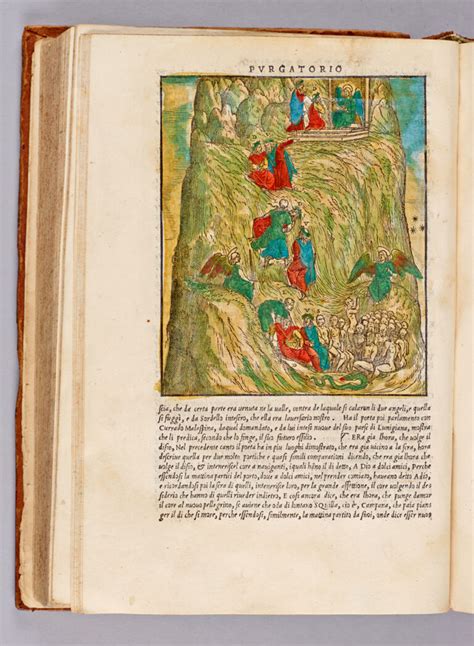 PVRGATORIO
scia, che da certa parte era venuta ne la valle, contra de laquale si calarun li due angeli, quella
si fuggò, e da Sordello intesero, che ella era l'aversario nostro. Ha il poeta poi parlamento con
Currado Malespina, daqual domandato, e da lui intese nuove del suo paese di Lunigiana, mostra
che li predica, secondo che lo finge, il suo futuro essilio. ERA gia lhora, che volge il
disio, Nel precedente canto il poeta ha in piu luoghi dimostrato, che era gia vicino a la sera, hora
descrive quella per due molto partiche e quasi simili comparationi dicendo, che era gia lhora che
volge il disio, & intenerisce il core a naviganti, iquali hãno il di detto, A Dio a dolci amici, Perche
essendosi la mattina partiti del porto, dove a dolci amici, nel prender comiato, haveano detto Adio,
a ricordandosi poi la sera di quelli, intenerisce loro, per la grande affettione, il core volgendo il de
siderio che hanno di quelli riveder indietro, E cosi ancora dice, che era lhora, che punge damor
il core al nuovo pellegrino, se aviene che oda di lontano SQVilla, cio è, Campana, che paia pian
ger il di che si more, perche essendosi, similmente, la mattina partito da suoi, onde dice esser nuo